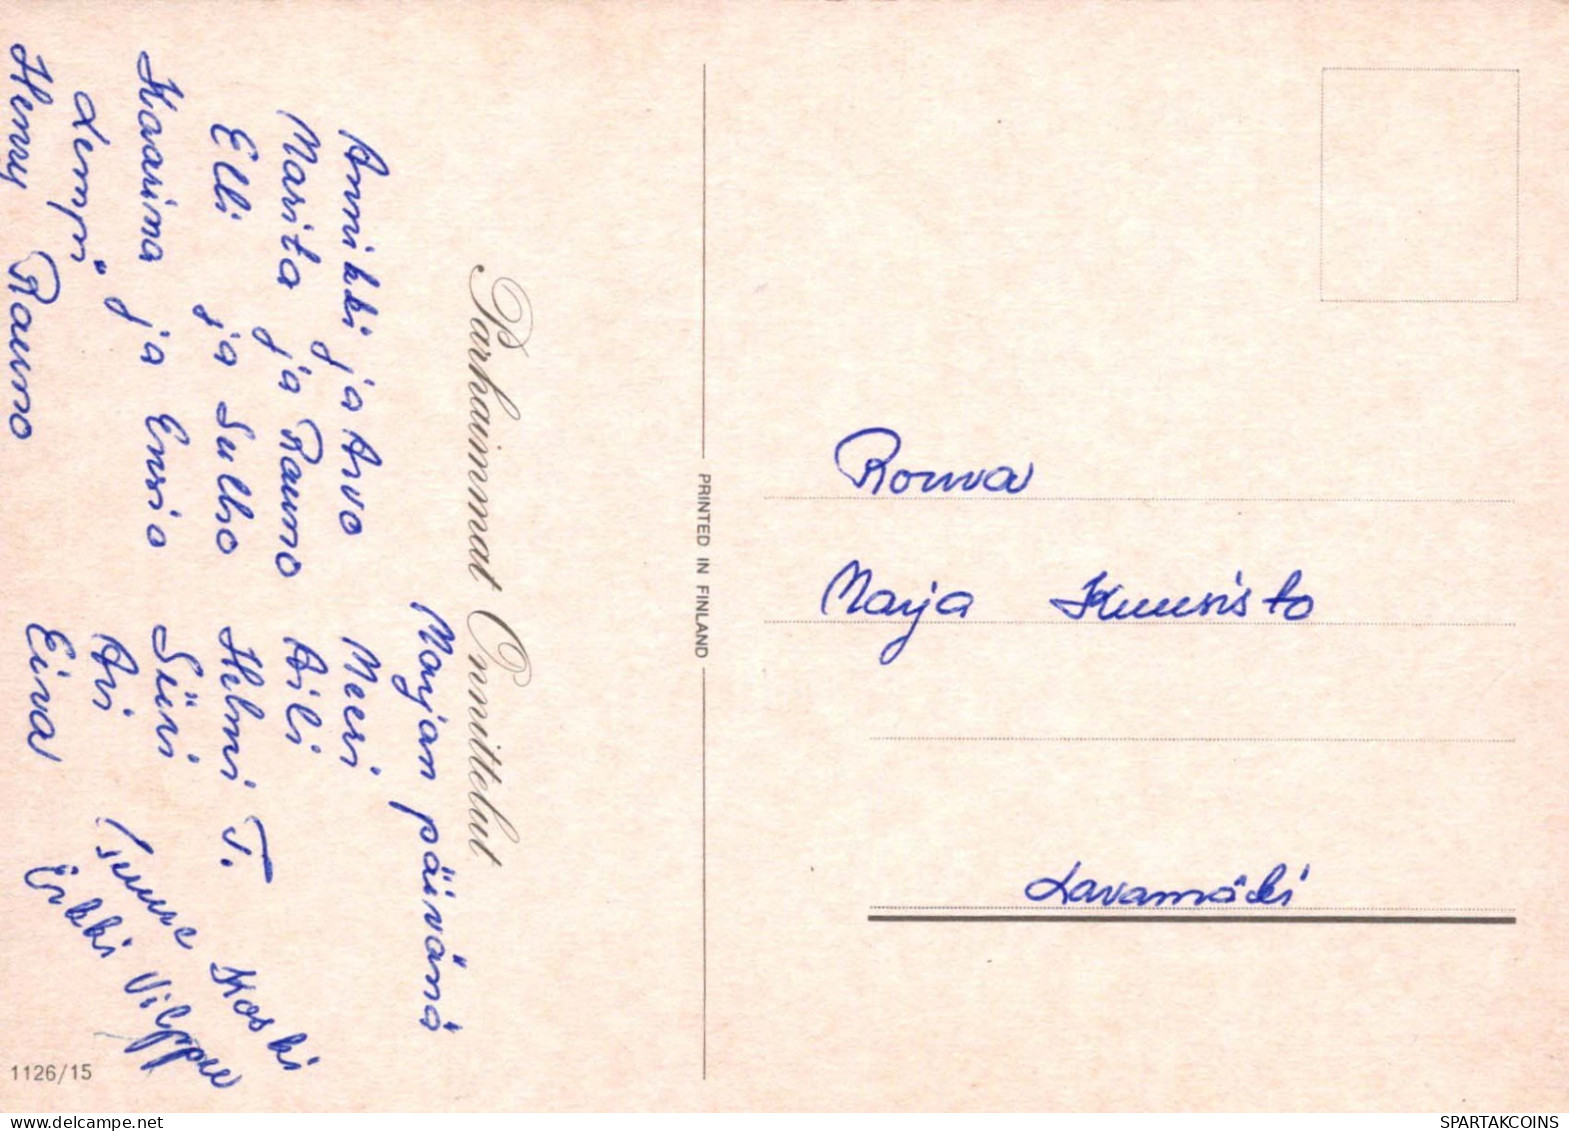 Parhaimmat Onnittelut
Marjan päivänä
Annikki ja Arvo
Marita ja Rauno
Elli ja Sulho
Kaarina ja Ensio
Lempi
Henry Rauno
Meeri
Aili
Helmi T.
Siiri
Ari
Eiva
Koski
Erkki Vilppu
PRINTED IN FINLAND
Rouva
Marja Kuusisto
Lavamäki
1126/15
www.delcampe.net
SPARTAKCOINS